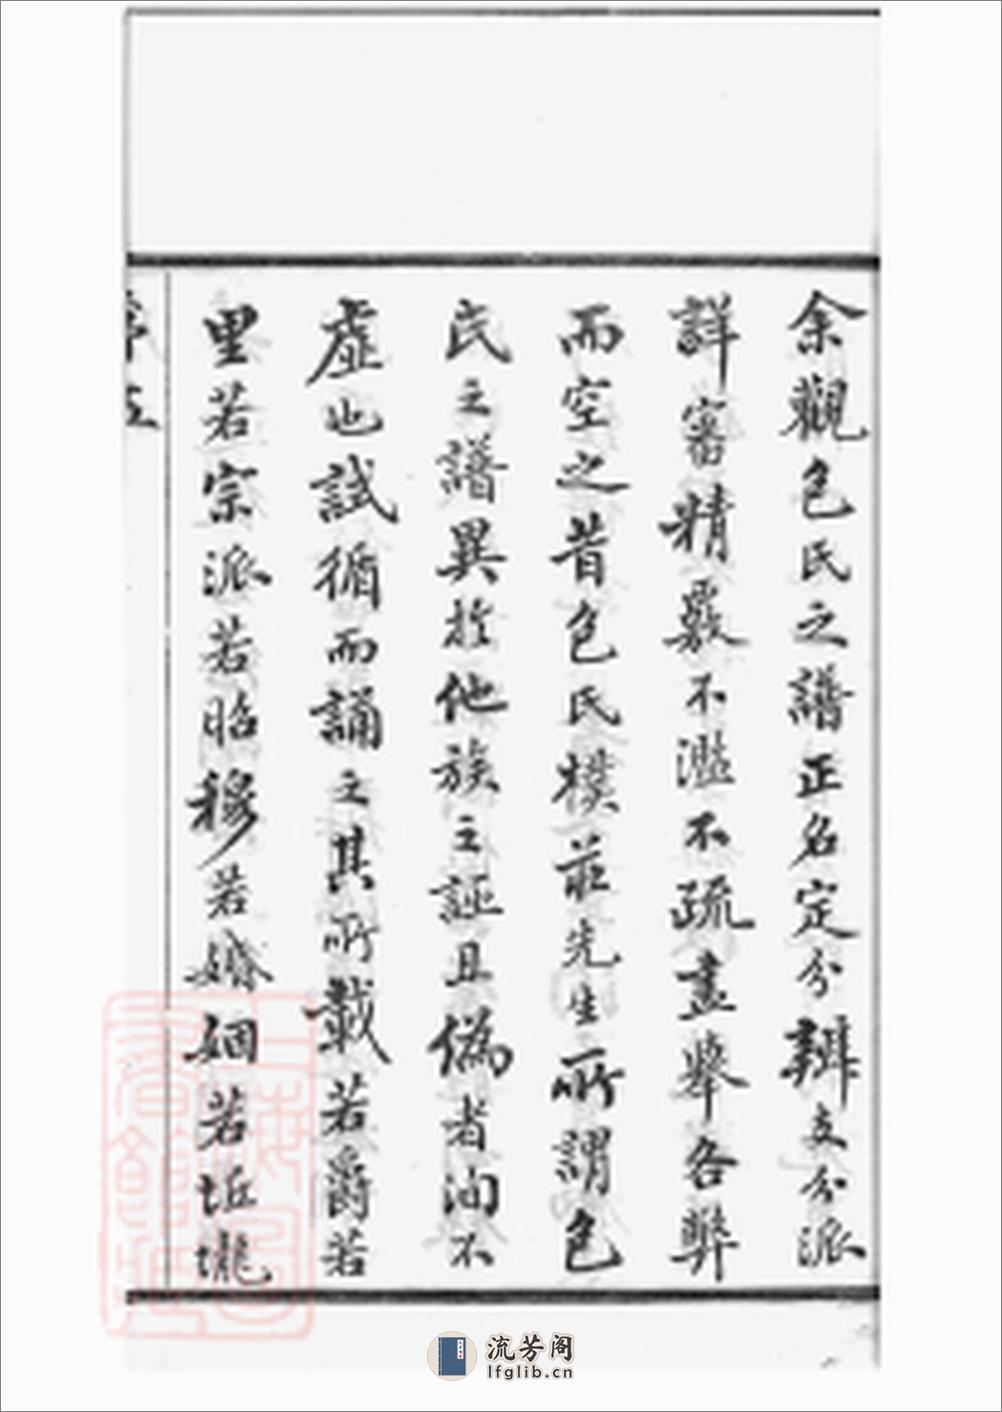 余觀包氏之譜正名定分辨支分派
詳審精覈不濫不疏盡舉各弊
而空之昔包氏樸莊先生所謂包
氏之譜異於他族之誣且偽者洵不
虛也試循而誦之其所載若爵若
里若宗派若昭穆若婚姻若坵壠
流芳阁
lfglib.cn